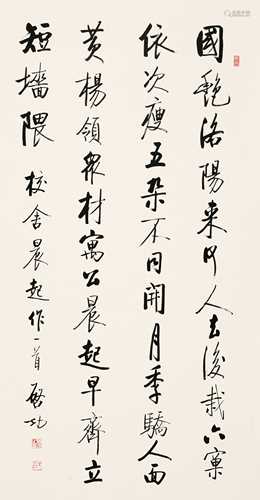 國艷洛陽來何人去後栽六窠
依次瘦五朵不同開月季驕人面
黃楊領眾材寓公晨起早齊立
短墻隈 校舍晨起作一首 啟功